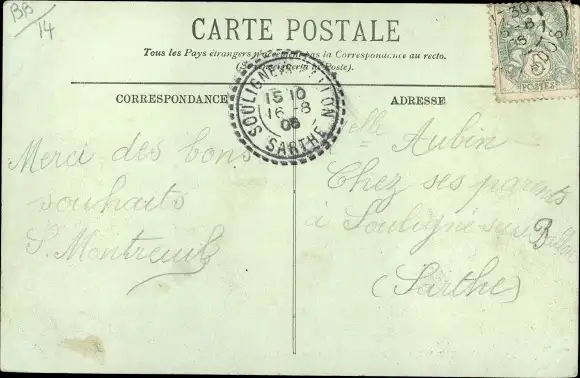 BB
14
CARTE POSTALE
Tous les Pays étrangers n'acceptent pas la Correspondance au recto.
(Se renseigner à la Poste).
SOULIGNE
SARTHE
15 10
16 -8
06
POSTES
CORRESPONDANCE
ADRESSE
Merci des bons
souhaits
S. Montreuil
elle Aubin
Chez ses parents
à Souligné sous Ballon
(Sarthe)